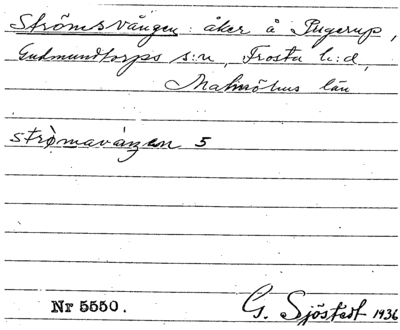 Strömsvången : åker å Pugerup,
Gudmundtorps s:n, Frosta h:d,
Malmöhus län
strømavånʒen 5
Nr 5550. G. Sjöstedt 1936